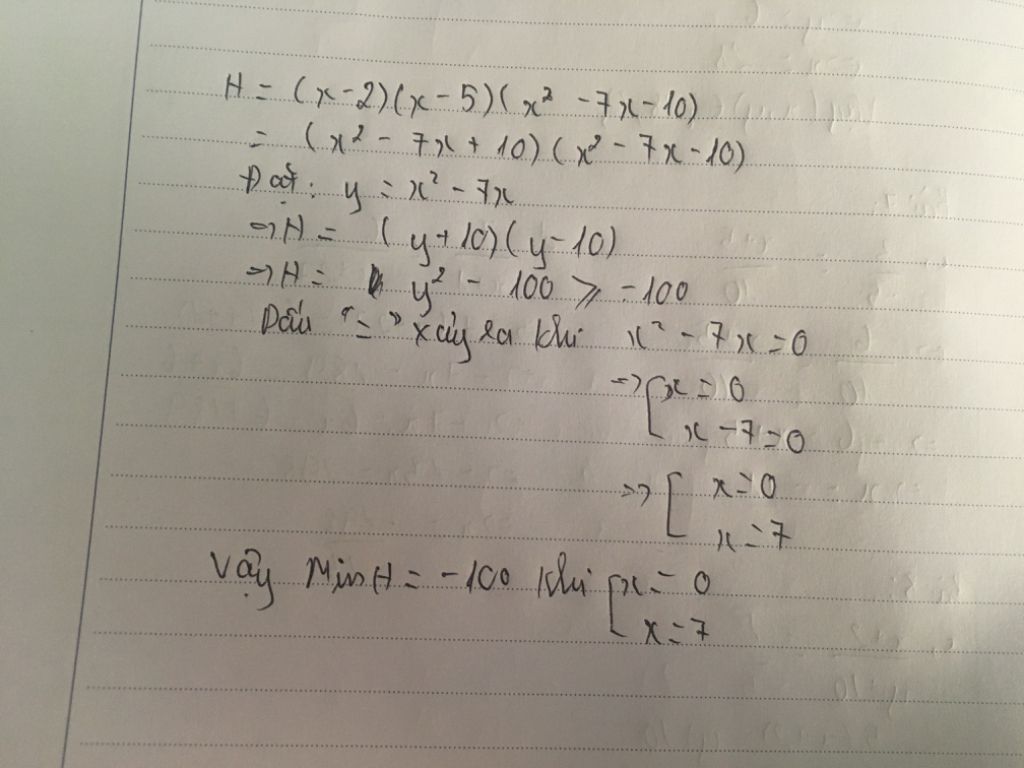 H = (x-2)(x-5)(x² -7x-10)
= (x² - 7x + 10)(x² - 7x-10)
Đặt: y = x² - 7x
=> H = (y+10)(y-10)
=> H = y² - 100 ⩾ -100
Dấu "=" xảy ra khi x² - 7x = 0
=> [ x = 0
x - 7 = 0
=> [ x = 0
x = 7
Vậy Min H = -100 khi [ x = 0
x = 7